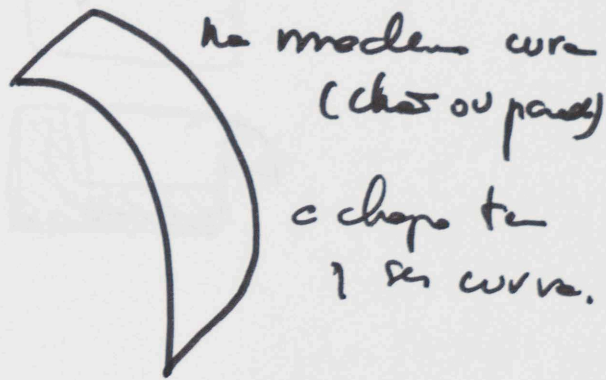 na madeira curva
(chão ou parede)
a chapa tem
q ser curva.